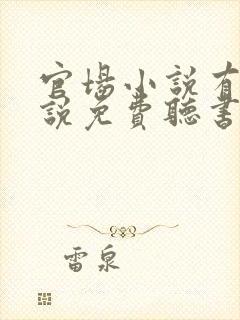 官場小說有
說免費聽書
雷泉